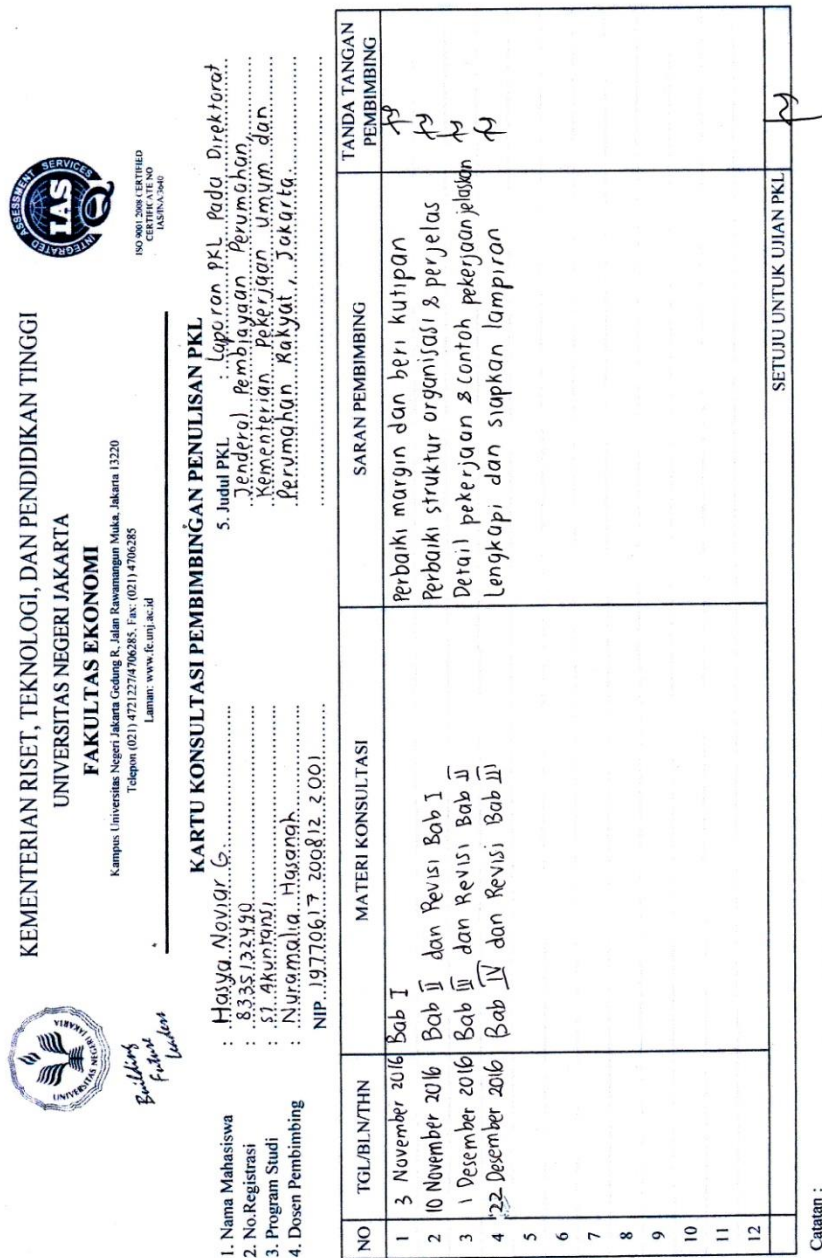 KEMENTERIAN RISET, TEKNOLOGI, DAN PENDIDIKAN TINGGI
UNIVERSITAS NEGERI JAKARTA
FAKULTAS EKONOMI
Kampus Universitas Negeri Jakarta Gedung R, Jalan Rawamangun Muka, Jakarta 13220
Telepon (021) 4721227/4706285, Fax: (021) 4706285
Laman: www.fe.unj.ac.id
UNIVERSITAS NEGERI JAKARTA
Building
Future
Leaders
INTEGRATED ASSESSMENT SERVICES
IAS
ISO 9001:2008 CERTIFIED
CERTIFICATE NO
IAS/INA/3640
KARTU KONSULTASI PEMBIMBINGAN PENULISAN PKL
1. Nama Mahasiswa : Hasya Noviar G.
2. No.Registrasi : 8335132490
3. Program Studi : S1 Akuntansi
4. Dosen Pembimbing : Nuramalia Hasanah
NIP. 19770617 200812 2 001
5. Judul PKL : Laporan PKL Pada Direktorat
Jenderal Pembiayaan Perumahan,
Kementerian Pekerjaan Umum dan
Perumahan Rakyat, Jakarta.
NO TGL/BLN/THN MATERI KONSULTASI SARAN PEMBIMBING TANDA TANGAN PEMBIMBING
1 3 November 2016 Bab I Perbaiki margin dan beri kutipan
2 10 November 2016 Bab II dan Revisi Bab I Perbaiki struktur organisasi & perjelas
3 1 Desember 2016 Bab III dan Revisi Bab II Detail pekerjaan & contoh pekerjaan jelaskan
4 22 Desember 2016 Bab IV dan Revisi Bab III Lengkapi dan siapkan lampiran
5
6
7
8
9
10
11
12
SETUJU UNTUK UJIAN PKL
Catatan :